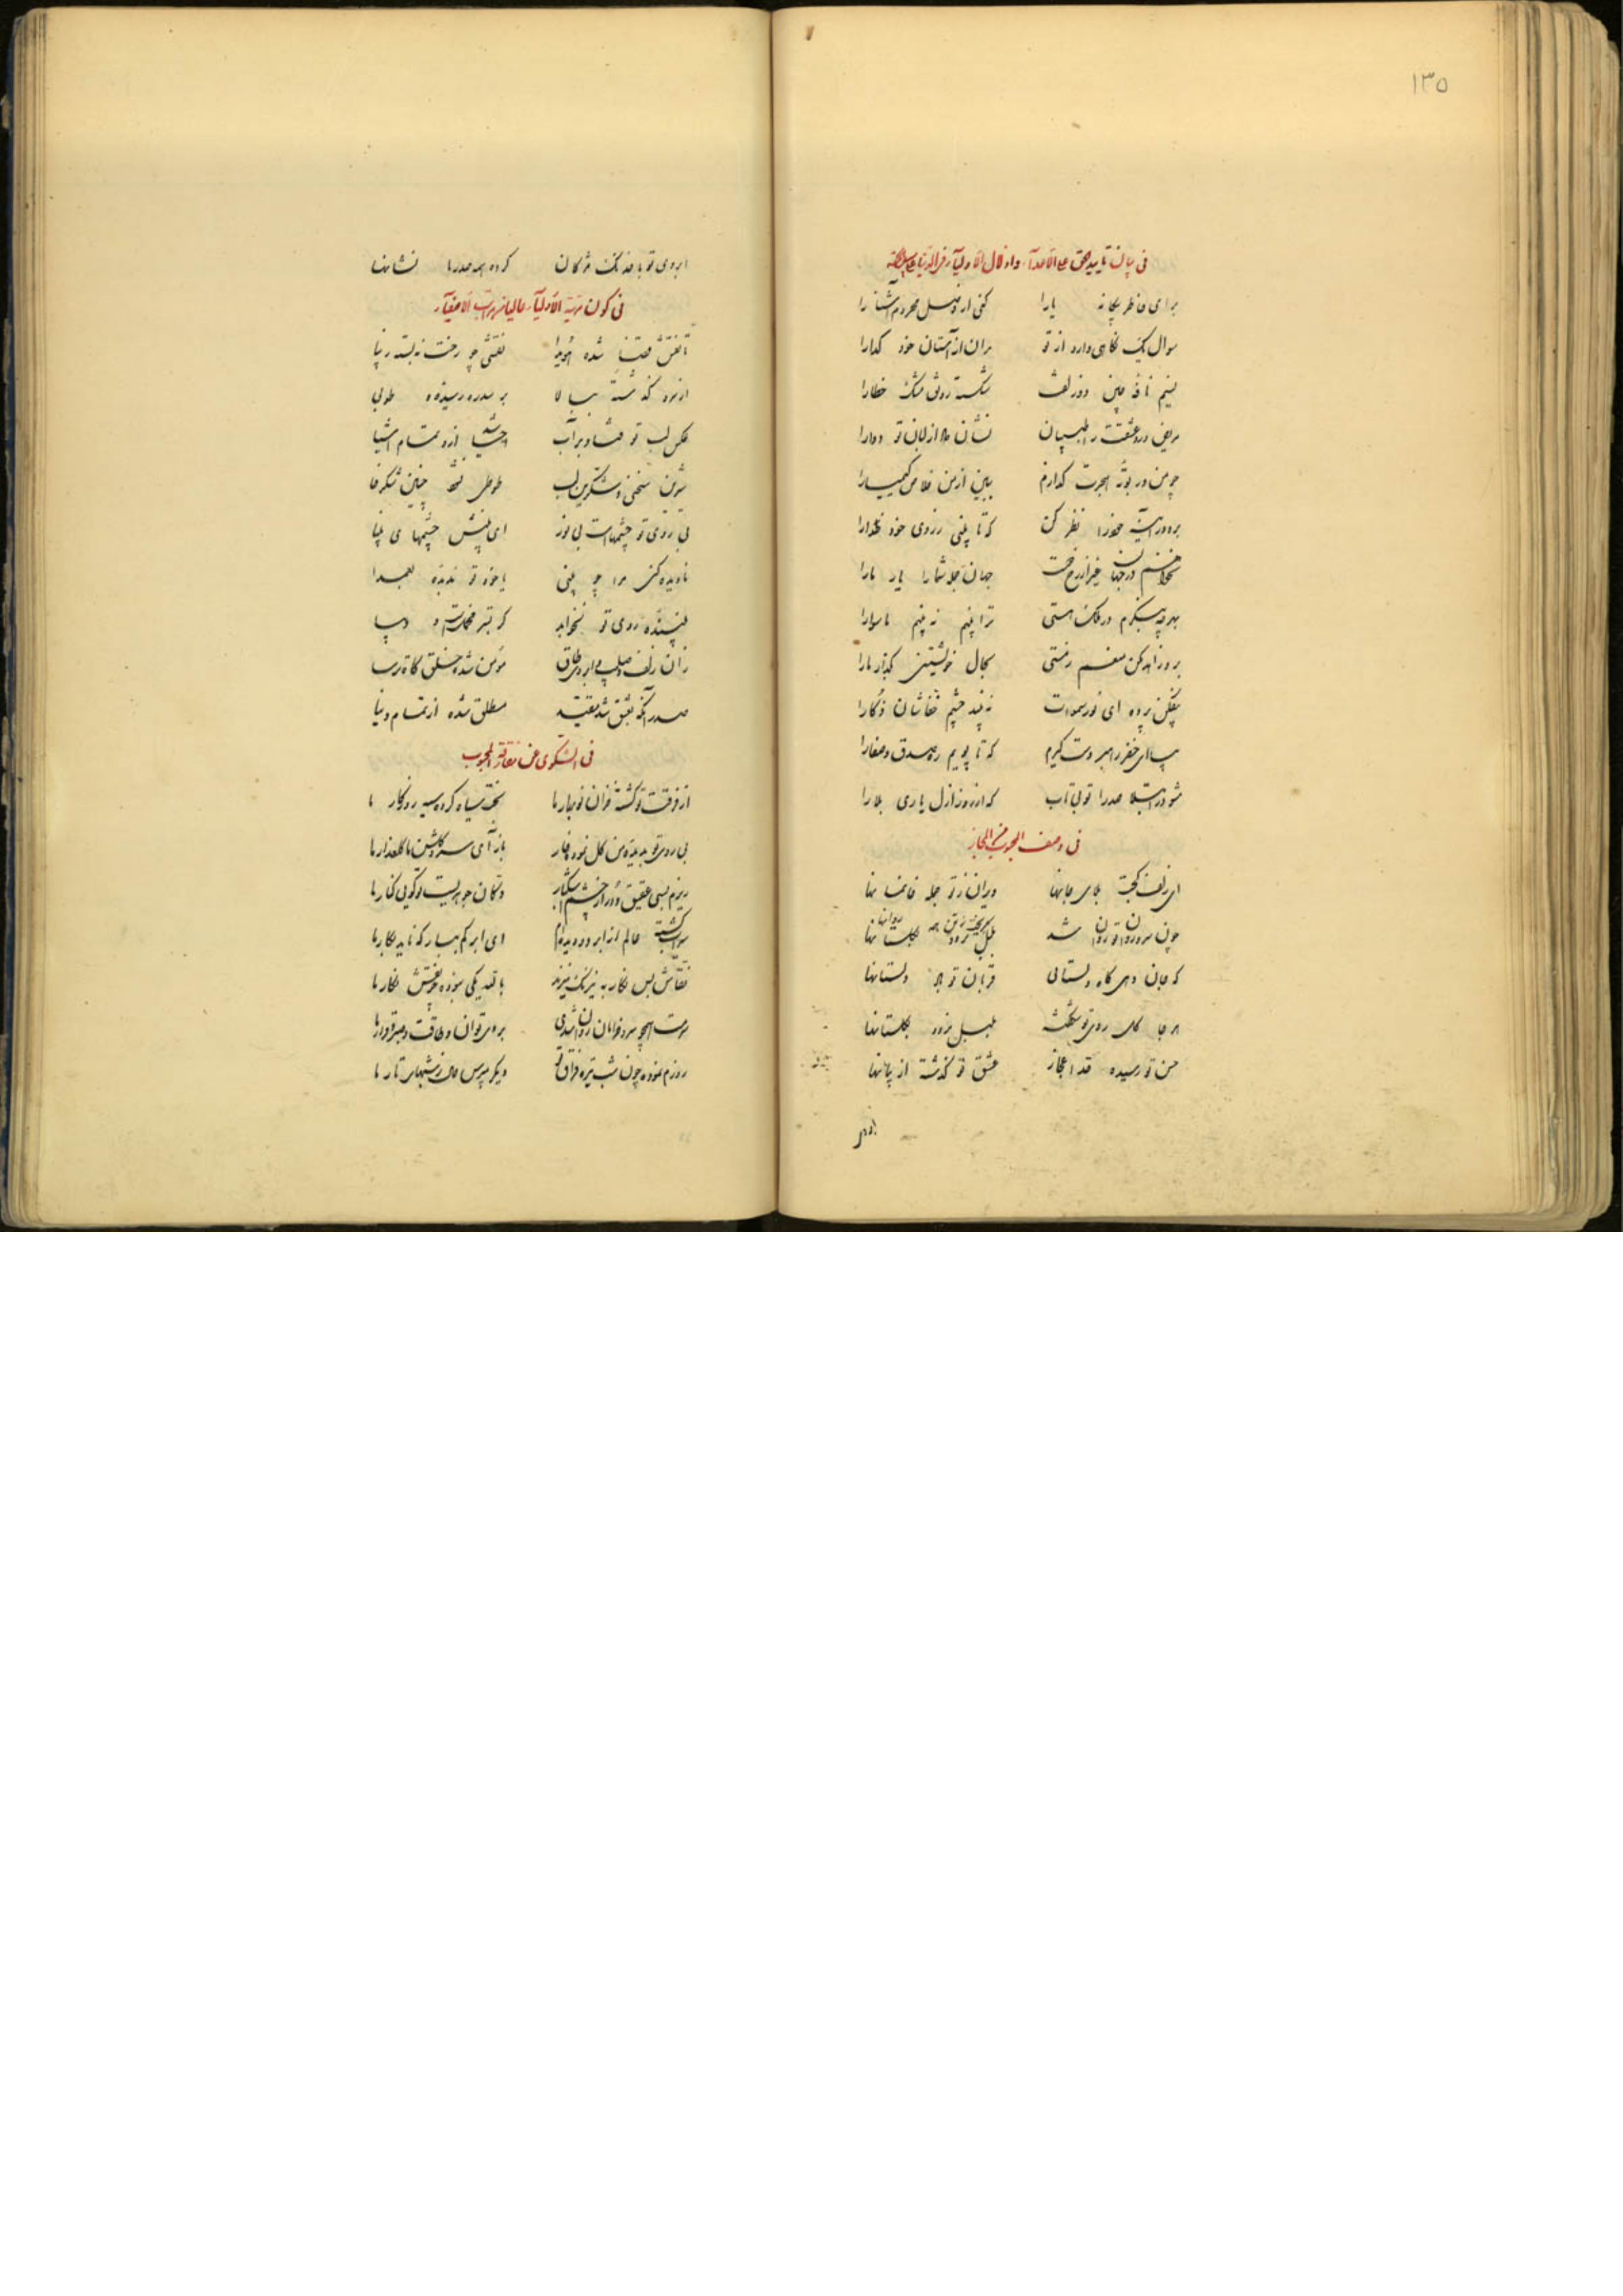 ۱۳۵
فی بیان تایید الحق علی الاعدآء و اذلال الاولیآء فی الدنیا
برای خاطر بیگانه یارا کنی از وصل محروم آشنا را
سوال یک نگاهی دارد از تو مران از آستان خود گدارا
نسیم نافه چین دو زلفت شکسته رونق مشک خطارا
مریض درد عشقت را طبیبان نشان داد از لبان تو دوارا
چو من در بوته هجرت گدازم ببین از من خلاص کیمیارا
برو در آینه خودرا نظر کن که تا بینی ز روی خود خدارا
نخواهم در جهان غیر از رخت جهان جمله شمارا یار مارا
بهر چه بنگرم در ملک هستی ترا بینم نه بینم ماسوارا
برو زاهد مکن منعم ز مستی بحال خویشتن بگذار مارا
بیفکن پرده ای نور سموات نه بیند چشم خفاشان ذکارا
بیا ای خضر راهبر دست گیرم که تا پویم ره صدق و صفارا
مشو در ابتلا صدرا تو بی تاب که از روز ازل یاری بلارا
فی وصف المحبوب فی المجاز
ای زلف کجت بلای جانها ویران ز تو جمله خانمانها
چون سرو روان تو روان شد
که جان دهی گاه دلستانی قربان تو دلستانها
هر جا گل روی تو شکفته بلبل نرود بگلستانها
حسن تو رسیده قد اعجاز عشق تو گذشته از بیانها
ابروی
ابروی تو با خدنگ مژگان کرده همه صدرا نشانها
فی کون مرتبة الاولیآء عالیا من مراتب الاصفیآء
تا نقش شده هویدا نقشی چو رخت نه بسته زیبا
از سرو گذشته ببالا بر سدره رسیده و طوبی
عکس لب تو فتاد بر آب احیا شد ازو تمام اشیا
شیرین سخنی و شکرین لب طوطی نبود چنین شکرخا
بی روی تو چشمهاست بی نور ای بینش چشمهای بینا
نادیده کنی مرا چو بینی یا خود تو ندیده بعمدا
بیننده روی تو نخواهد گر بستر مخملست و دیبا
زان زلف صلیب و ابروی طاق مؤمن شده خلق گاه ترسا
صدرا که بعشق شد مقید مطلق شده از تمام دنیا
فی الشکوی عن مفارقة المحبوب
از فرقت تو گشته خزان نوبهار ما بخت سیاه کرده سیه روزگار ما
بی روی تو بدیده من گل نمود خار باز آی سرو گلشن ما گلعذار ما
ریزم بسی عقیق و در از چشم اشکبار دکان جوهریست تو گویی کنار ما
سیراب گشته عالم از ابر دو دیده ام ای ابر کم ببار که ناید بکار ما
نقاش بس نگار به نیرنگ میزند با قد یکی نبوده چو نقش نگار ما
سویت همچو سرو خرامان روان شدی بردی توان و طاقت و صبر و قرار ما
روزم نموده چون شب تیره فراق تو دیگر مپرس حال ز شبهای تار ما